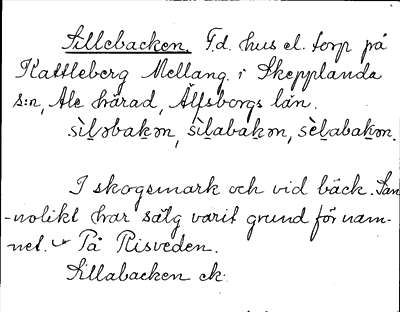 Sillebacken. F.d. hus el. torp på
Kattleberg Mellang. i Skepplanda
s:n, Ale härad, Älfsborgs län.
sìl̠əbak̠ən, sìl̠abak̠ən, sèl̠abak̠ən.
I skogsmark och vid bäck. San-
-nolikt har sälg varit grund för nam-
net. På Risveden.
Sillabacken ek.